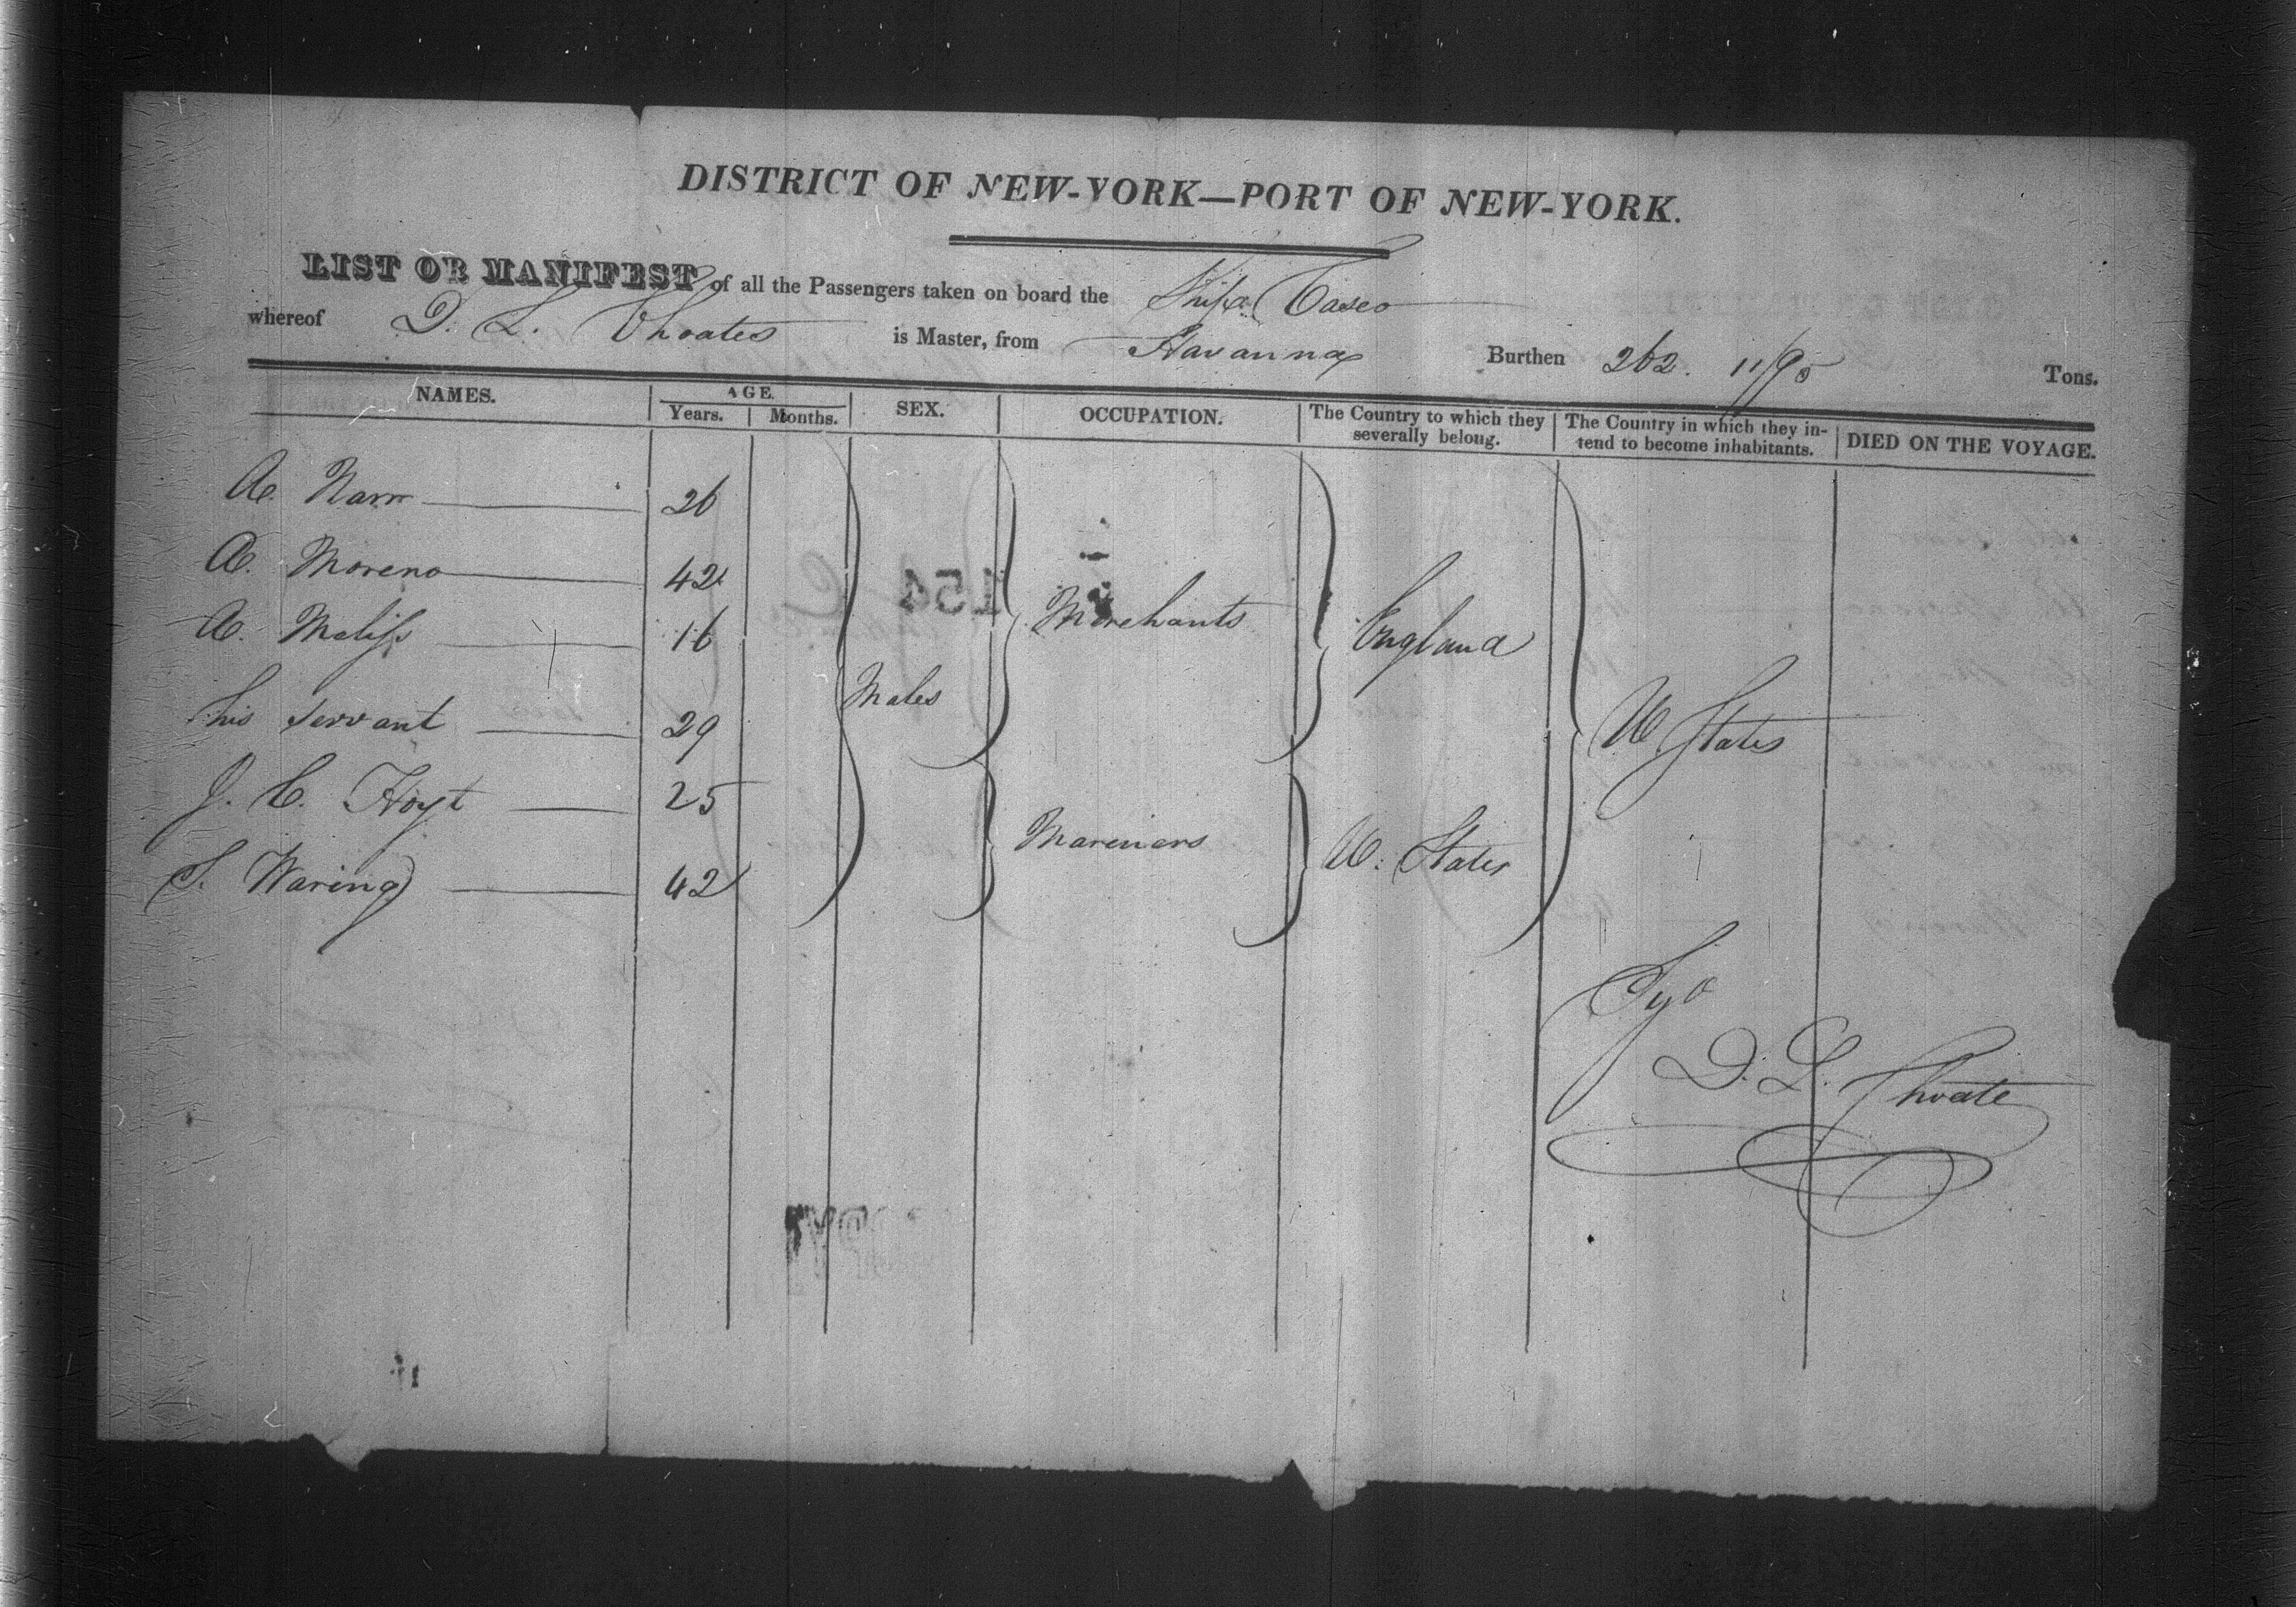 DISTRICT OF NEW-YORK—PORT OF NEW-YORK.
LIST OR MANIFEST of all the Passengers taken on board the Ship Casco
whereof D. L. Choates is Master, from Havanna Burthen 262. 11/95 Tons.
NAMES. AGE. SEX. OCCUPATION. The Country to which they severally belong. The Country in which they intend to become inhabitants. DIED ON THE VOYAGE.
Years. Months.
A. Narr 26
A. Moreno 42
A. 16 Merchants England
his servant 29 Males U States
J. C. Hoyt 25
S. Waring 42 Mareners U. States
D. L. Choate
154